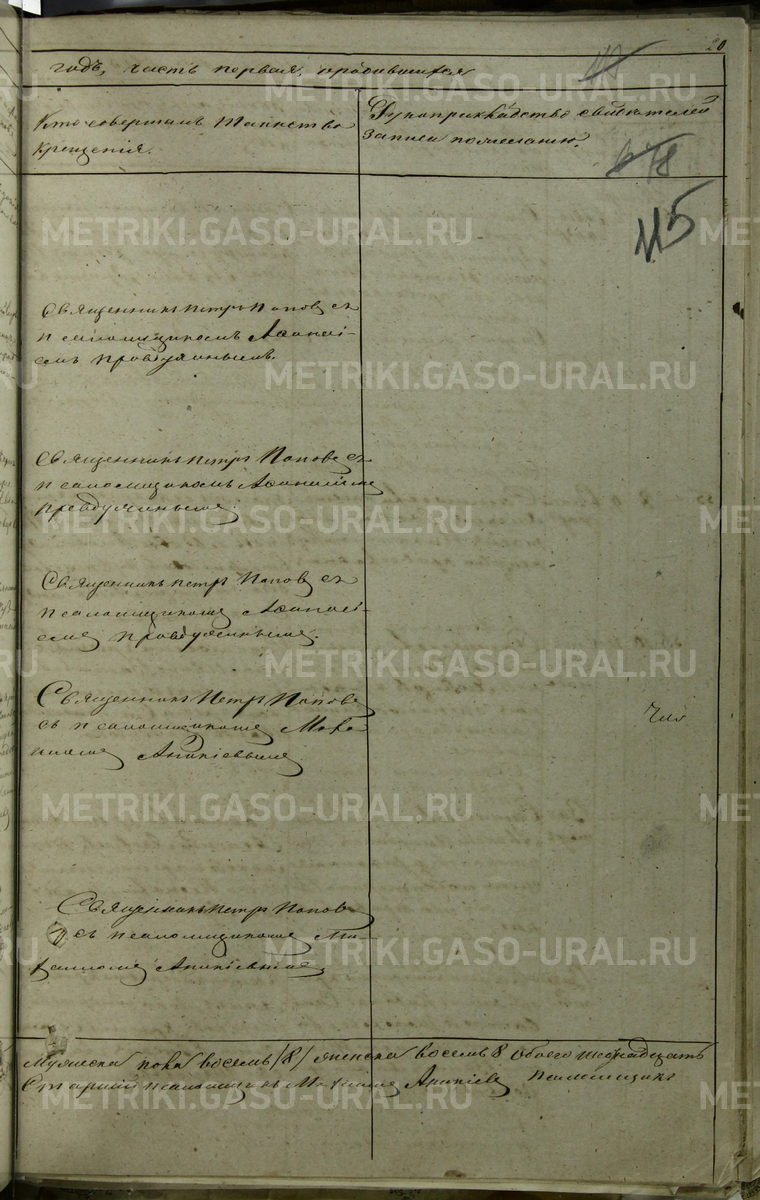 20
годъ, часть первая, о родившихся
Кто совершалъ таинство
крещенія.
Рукоприкладство свидѣтелей
записи по желанію.
78
115
Священникъ Петръ Поповъ съ
псаломщикомъ Аѳанасі-
емъ Правдухинымъ.
Священникъ Петръ Поповъ съ
псаломщикомъ Аѳанасіемъ
Правдухинымъ.
Священникъ Петръ Поповъ съ
псаломщикомъ Аѳанасі-
емъ Правдухинымъ.
Священникъ Петръ Поповъ
съ псаломщикомъ Миха-
иломъ Аникіевымъ
Священникъ Петръ Поповъ
съ псаломщикомъ Ми-
хаиломъ Аникіевымъ
Мужеска пола восемь /8/ женска восемь 8 Обоего шестнадцать
Старшій псаломщикъ Михаилъ Аникіевъ псаломщикъ
METRIKI.GASO-URAL.RU